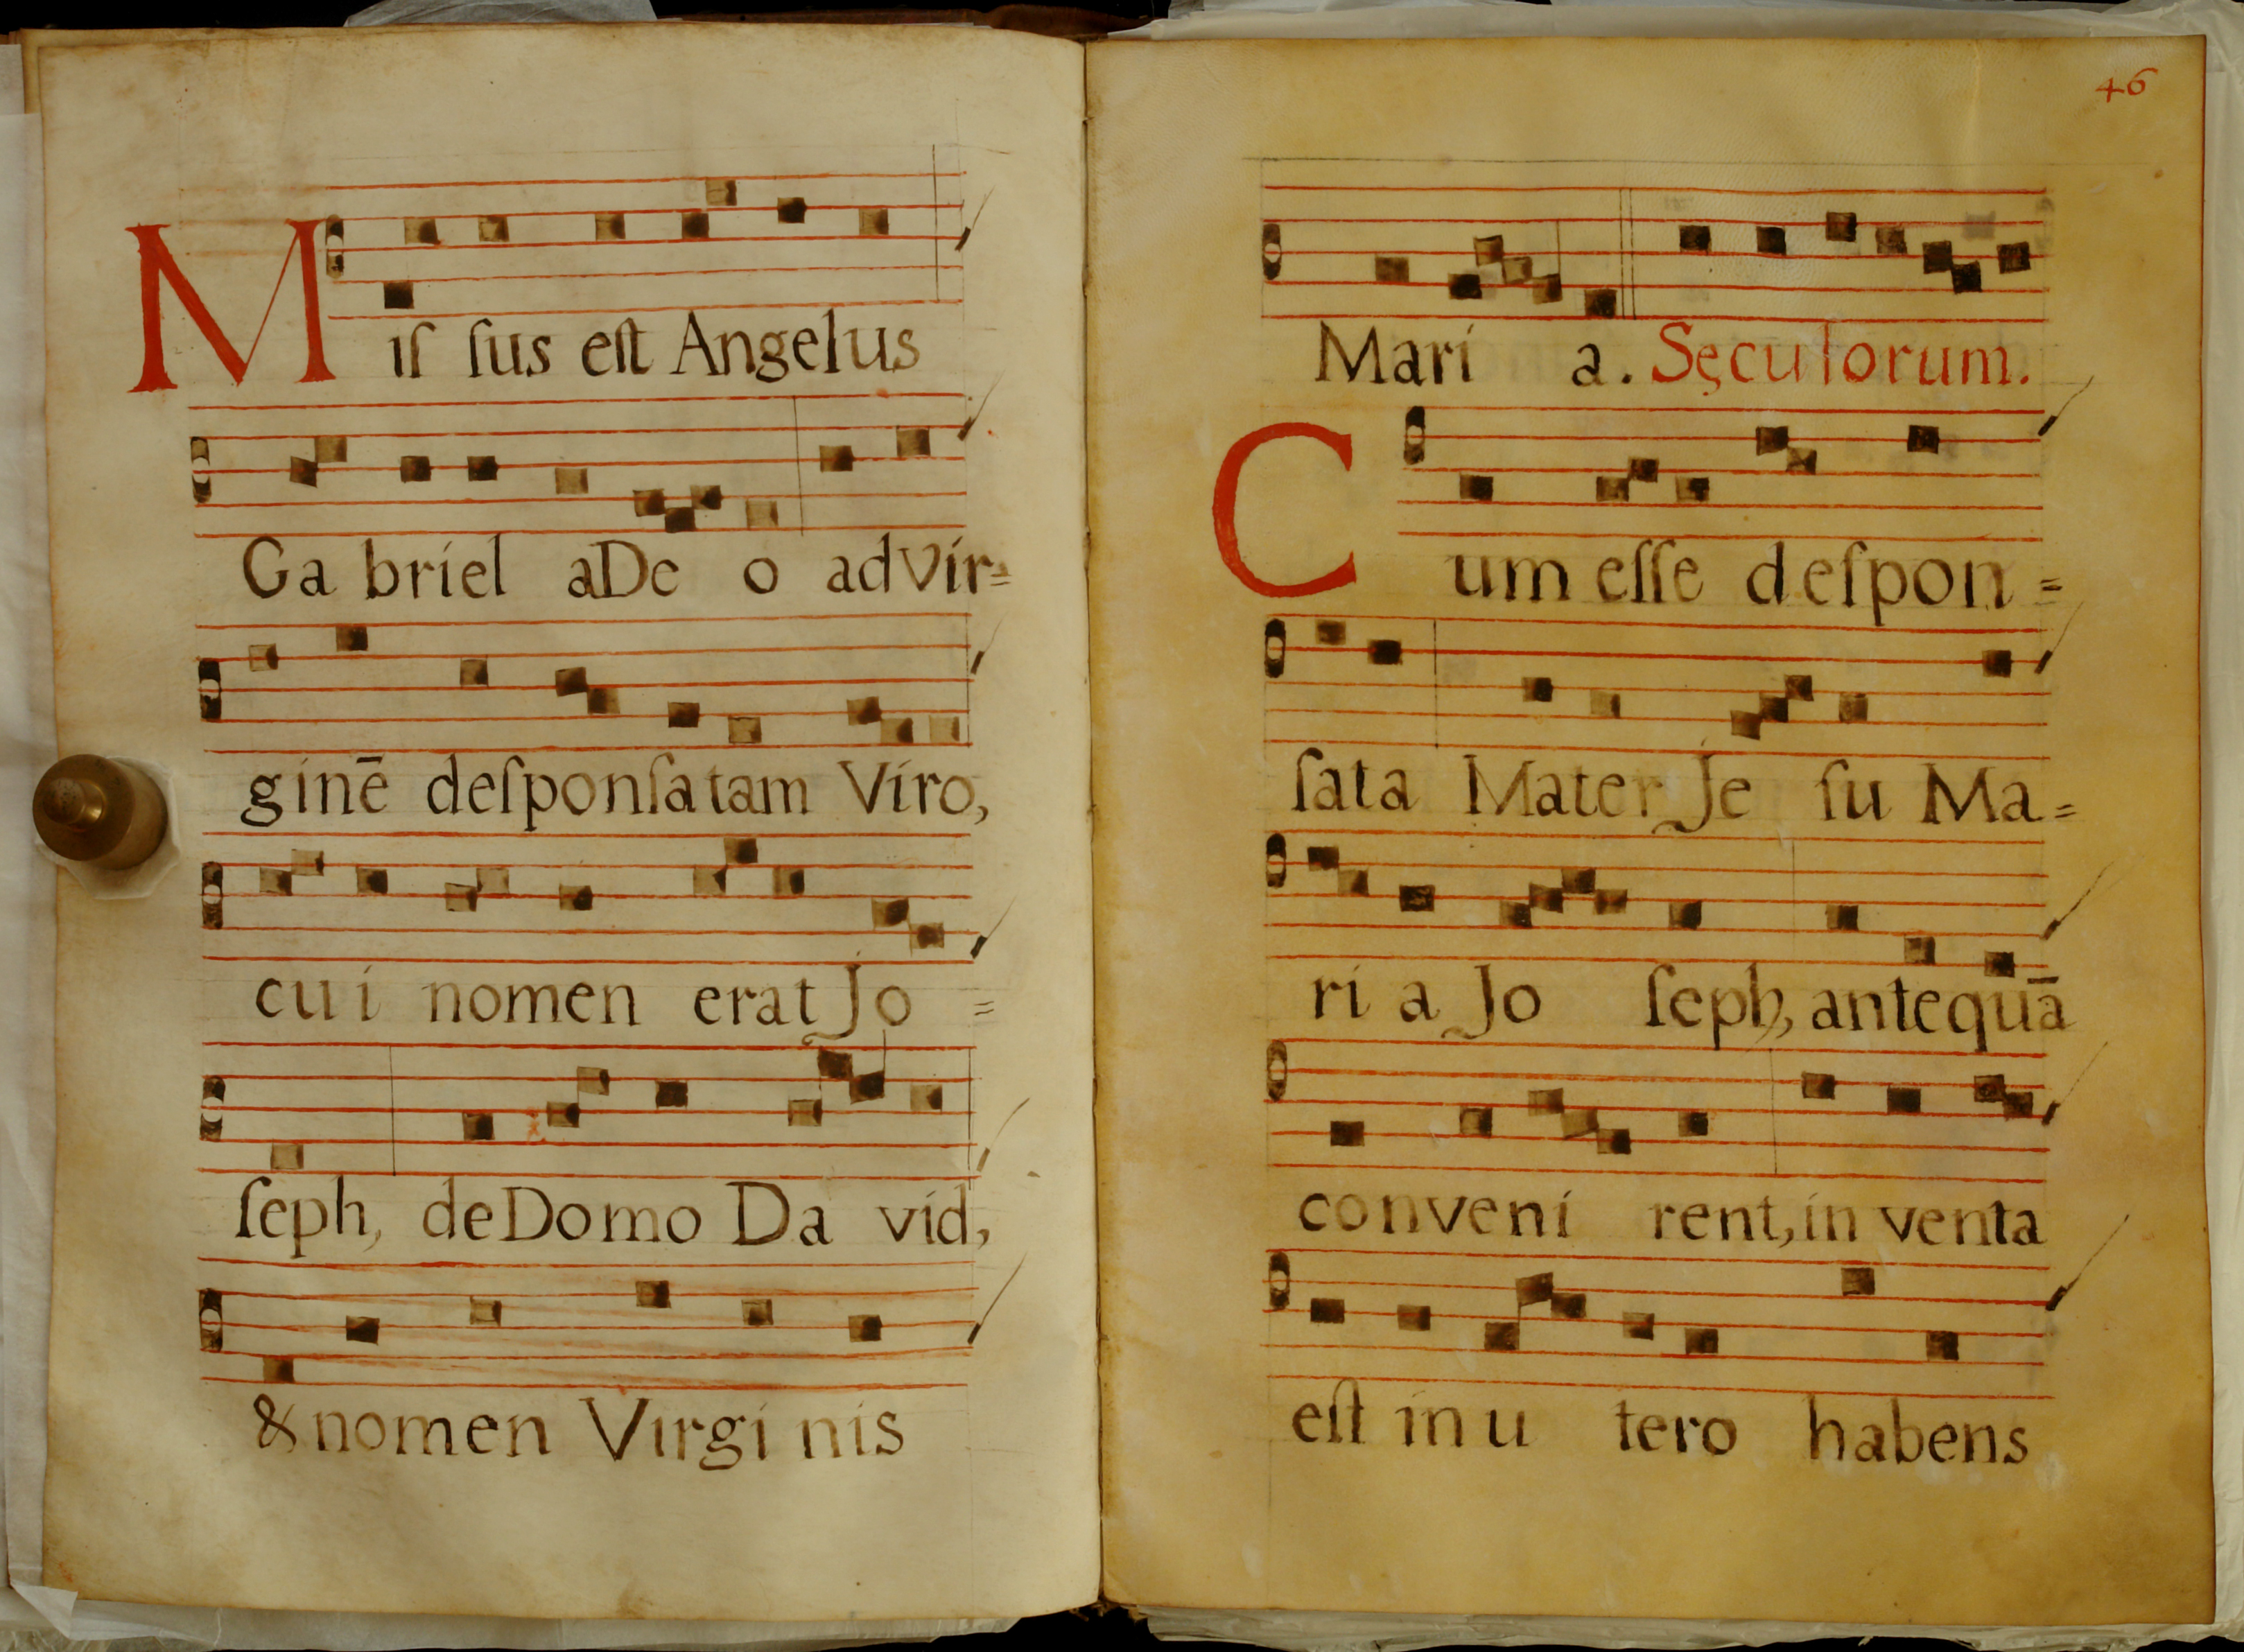 Miſ ſus eſt Angelus
Ga briel aDe o ad Vir=
ginē deſponſatam Viro,
cui nomen erat Jo =
ſeph, de Domo Da vid,
& nomen Virgi nis
46
Mari a. Sęculorum.
Cum eſſe deſpon =
ſata Mater Je ſu Ma =
ri a Jo ſeph, antequā
conveni rent, in venta
eſt in u tero habens